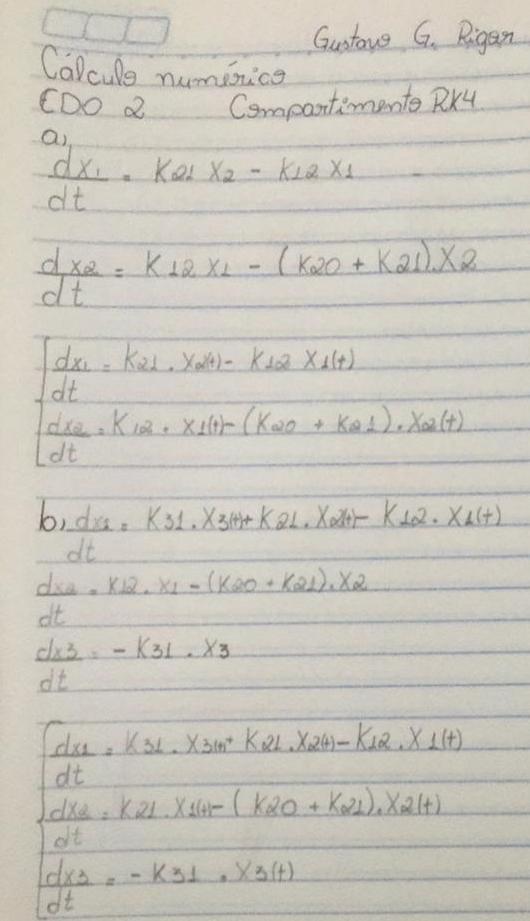 Gustavo G. Rigon
Cálculo numérico
EDO 2 Compartimento RK4
a)
dx1 = K21 X2 - K12 X1
dt
dx2 = K12 X1 - (K20 + K21).X2
dt
dx1 = K21 . X2(t) - K12 X1(t)
dt
dx2 = K12 . X1(t) - (K20 + K21).X2(t)
dt
b) dx1 = K31 . X3(t) + K21 . X2(t) - K12 . X1(t)
dt
dx2 = K12 . X1 - (K20 + K21).X2
dt
dx3 = - K31 . X3
dt
dx1 = K31 . X3(t) + K21 . X2(t) - K12 . X1(t)
dt
dx2 = K21 . X1(t) - (K20 + K21).X2(t)
dt
dx3 = - K31 . X3(t)
dt